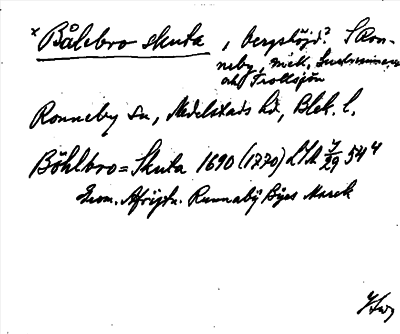 x Bålebro skuta, bergshöjd? S Ron-
neby, mell.
och Trollsjön
Ronneby sn, Medelstads hd, Blek. l.
Böhlbro = Skuta 1690 (1770) LSA 7/29 54 4
Geom. Afrijtn. Runnabÿ Bÿes Marck